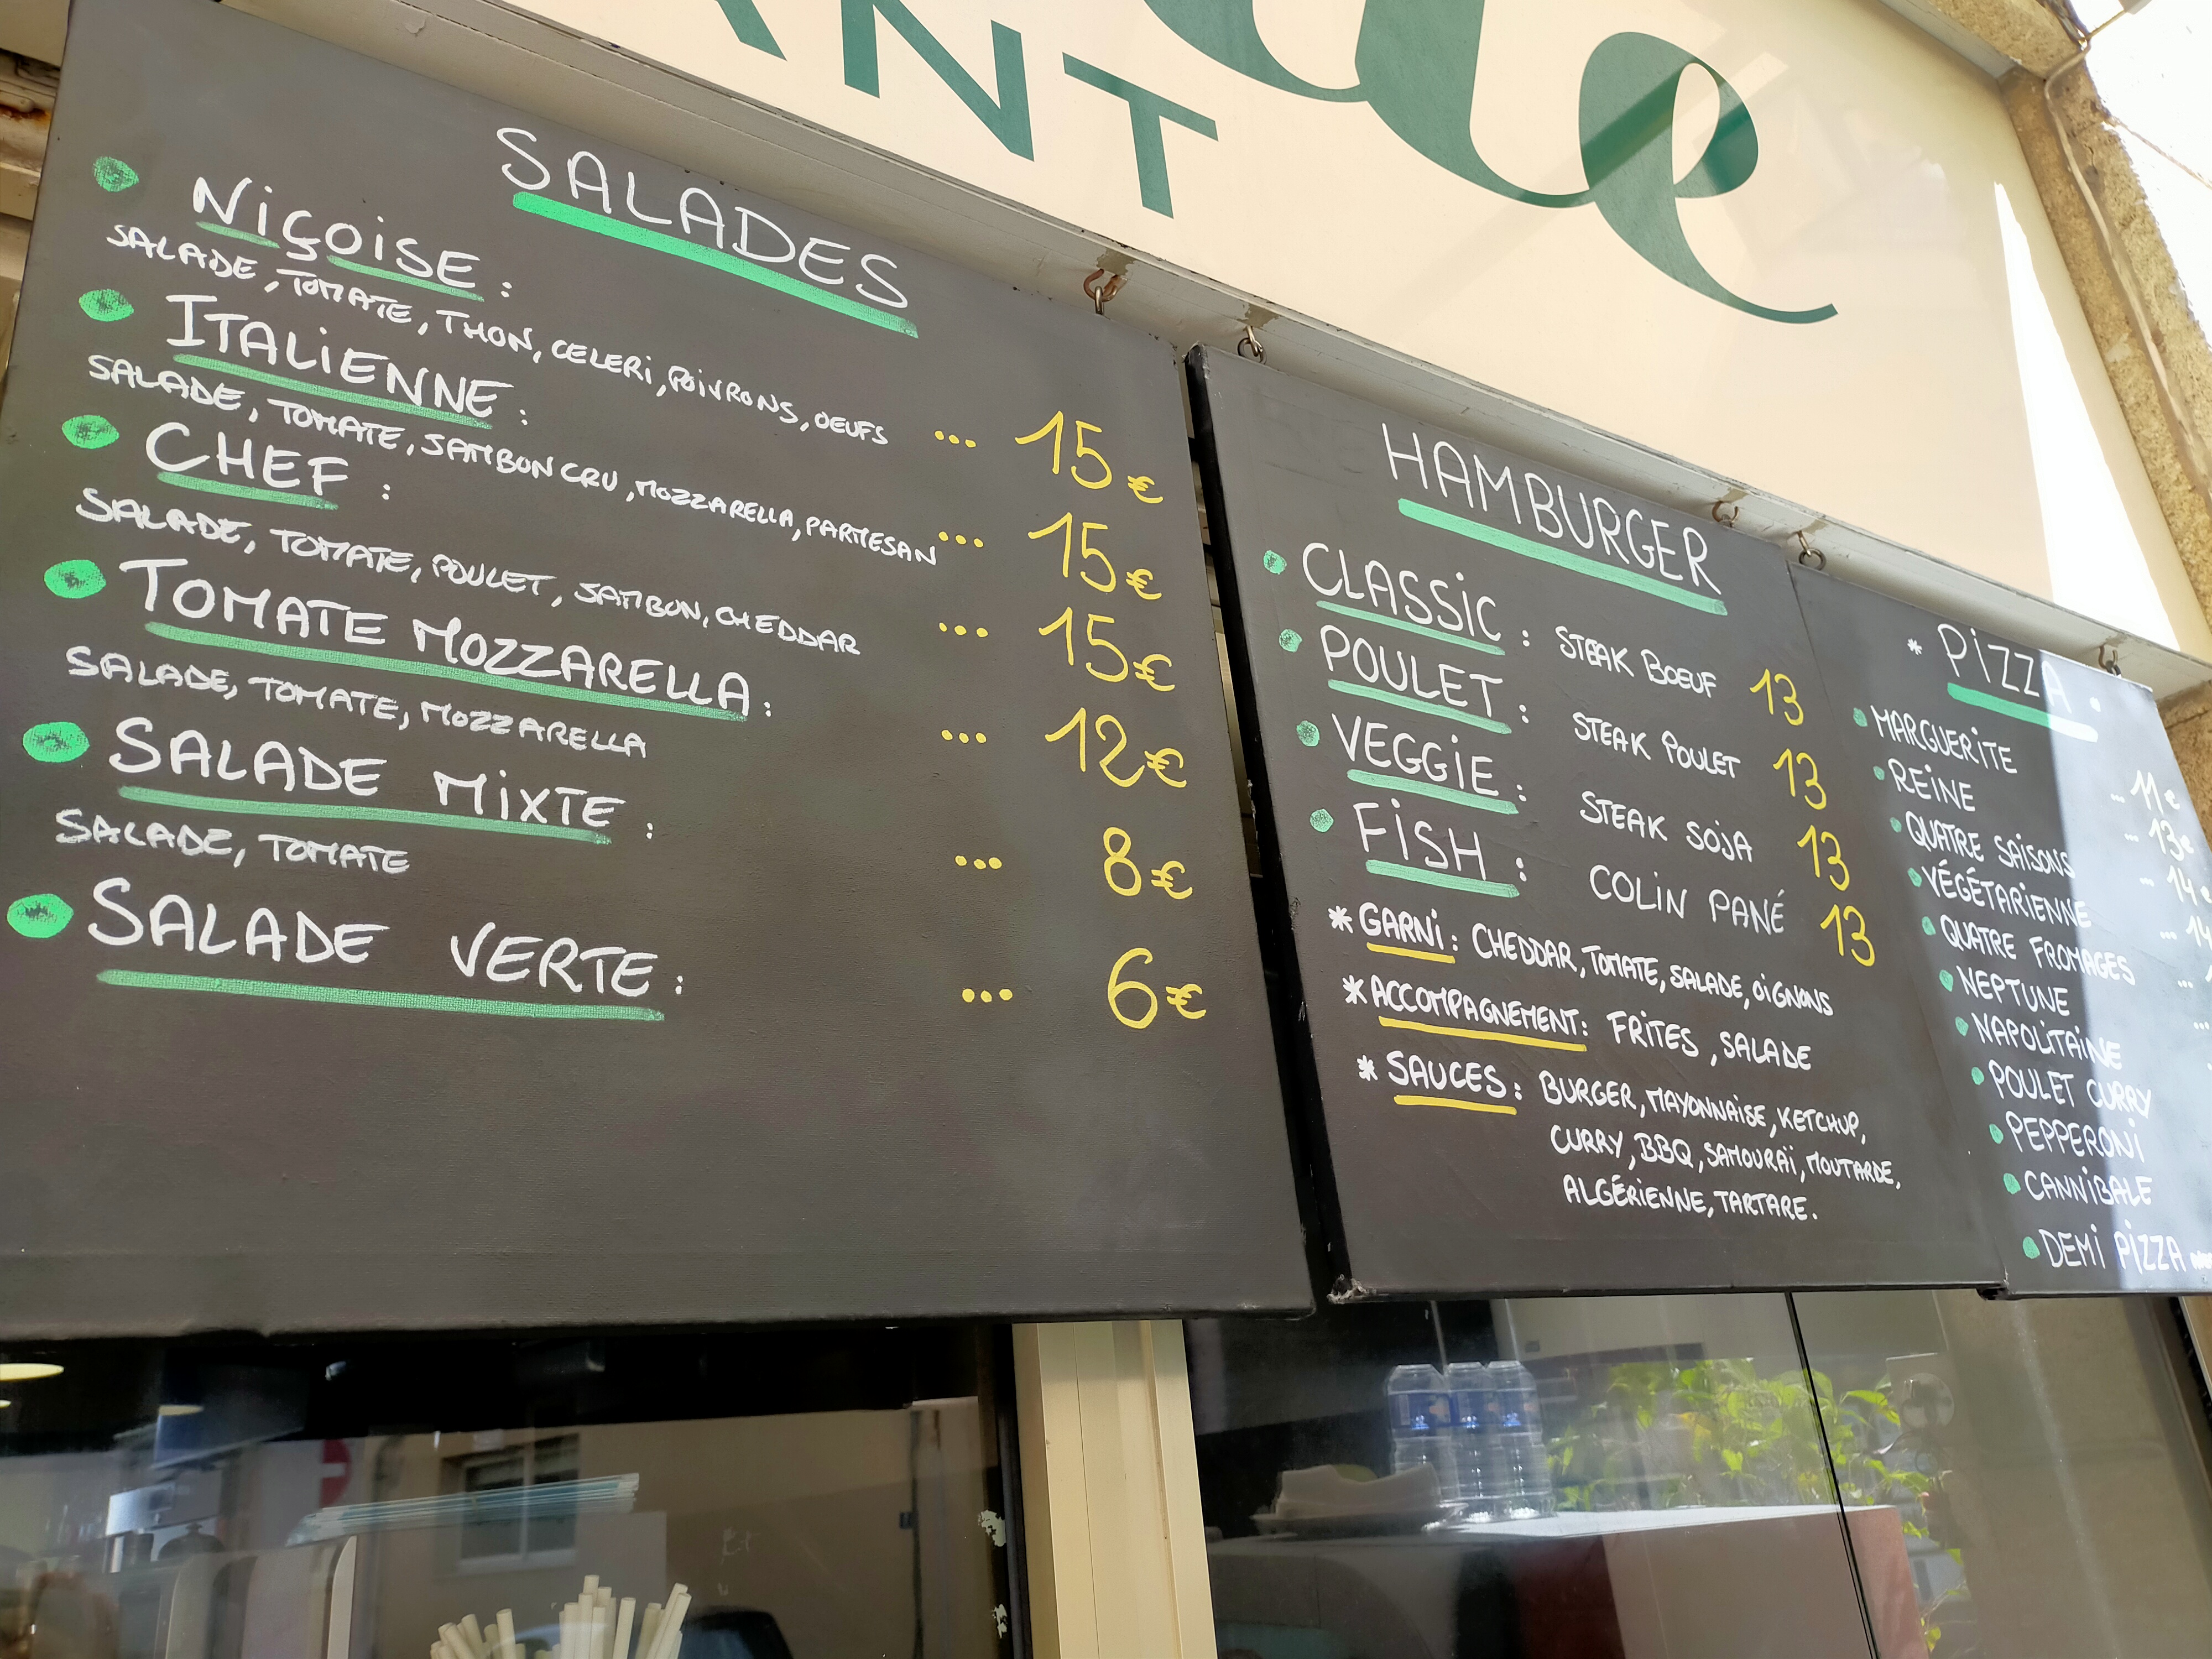 ANT
SALADES
NIÇOISE :
SALADE, TOMATE, THON, CELERI, POIVRONS, OEUFS ... 15€
ITALIENNE :
SALADE, TOMATE, JAMBON CRU, MOZZARELLA, PARMESAN ... 15€
CHEF :
SALADE, TOMATE, POULET, JAMBON, CHEDDAR ... 15€
TOMATE MOZZARELLA :
SALADE, TOMATE, MOZZARELLA ... 12€
SALADE MIXTE :
SALADE, TOMATE ... 8€
SALADE VERTE : ... 6€
HAMBURGER
CLASSIC : STEAK BOEUF 13
POULET : STEAK POULET 13
VEGGIE : STEAK SOJA 13
FISH : COLIN PANÉ 13
* GARNI : CHEDDAR, TOMATE, SALADE, OIGNONS
* ACCOMPAGNEMENT : FRITES, SALADE
* SAUCES : BURGER, MAYONNAISE, KETCHUP,
CURRY, BBQ, SAMOURAÏ, MOUTARDE,
ALGÉRIENNE, TARTARE.
* PIZZA •
MARGUERITE ... 11€
REINE ... 13€
QUATRE SAISONS ... 14
VÉGÉTARIENNE ... 14
QUATRE FROMAGES ...
NEPTUNE ...
NAPOLITAINE
POULET CURRY
PEPPERONI
CANNIBALE
DEMI PIZZA